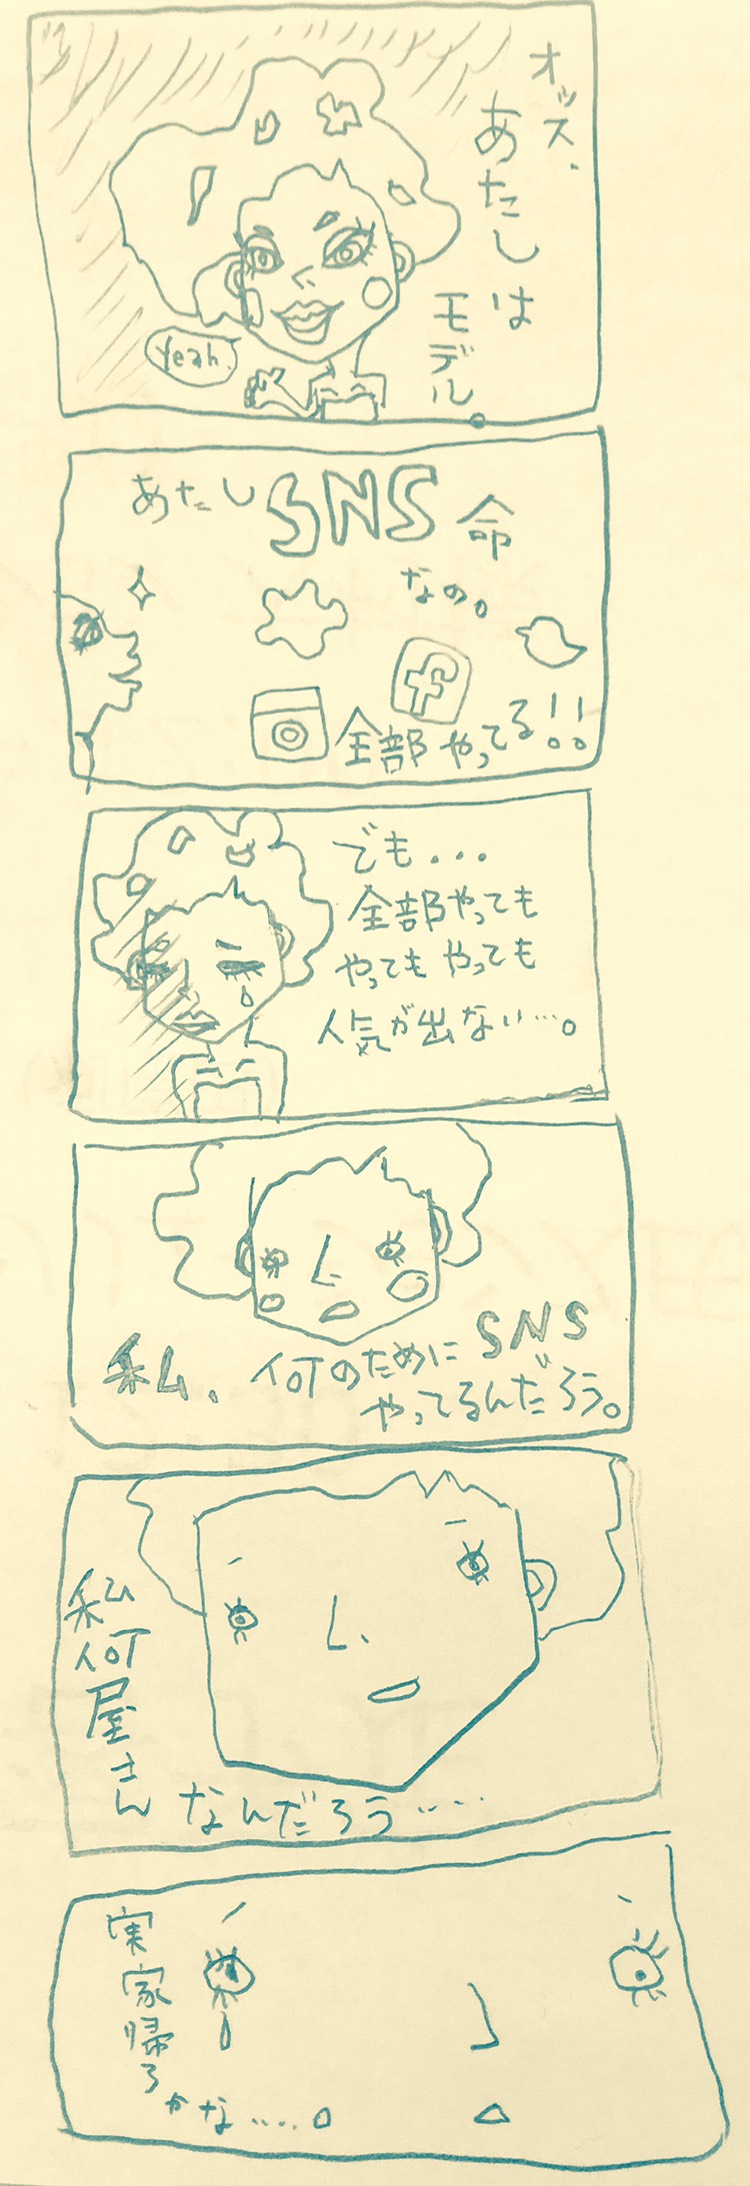 オッス、
あたしは
モデル。
Yeah.
あたしSNS命
なの。
f
全部やってる!!
でも...
全部やっても
やってもやっても
人気が出ない...。
私、何のためにSNS
やってるんだろう。
私何屋さん
なんだろう....
実家帰ろ
かな....。